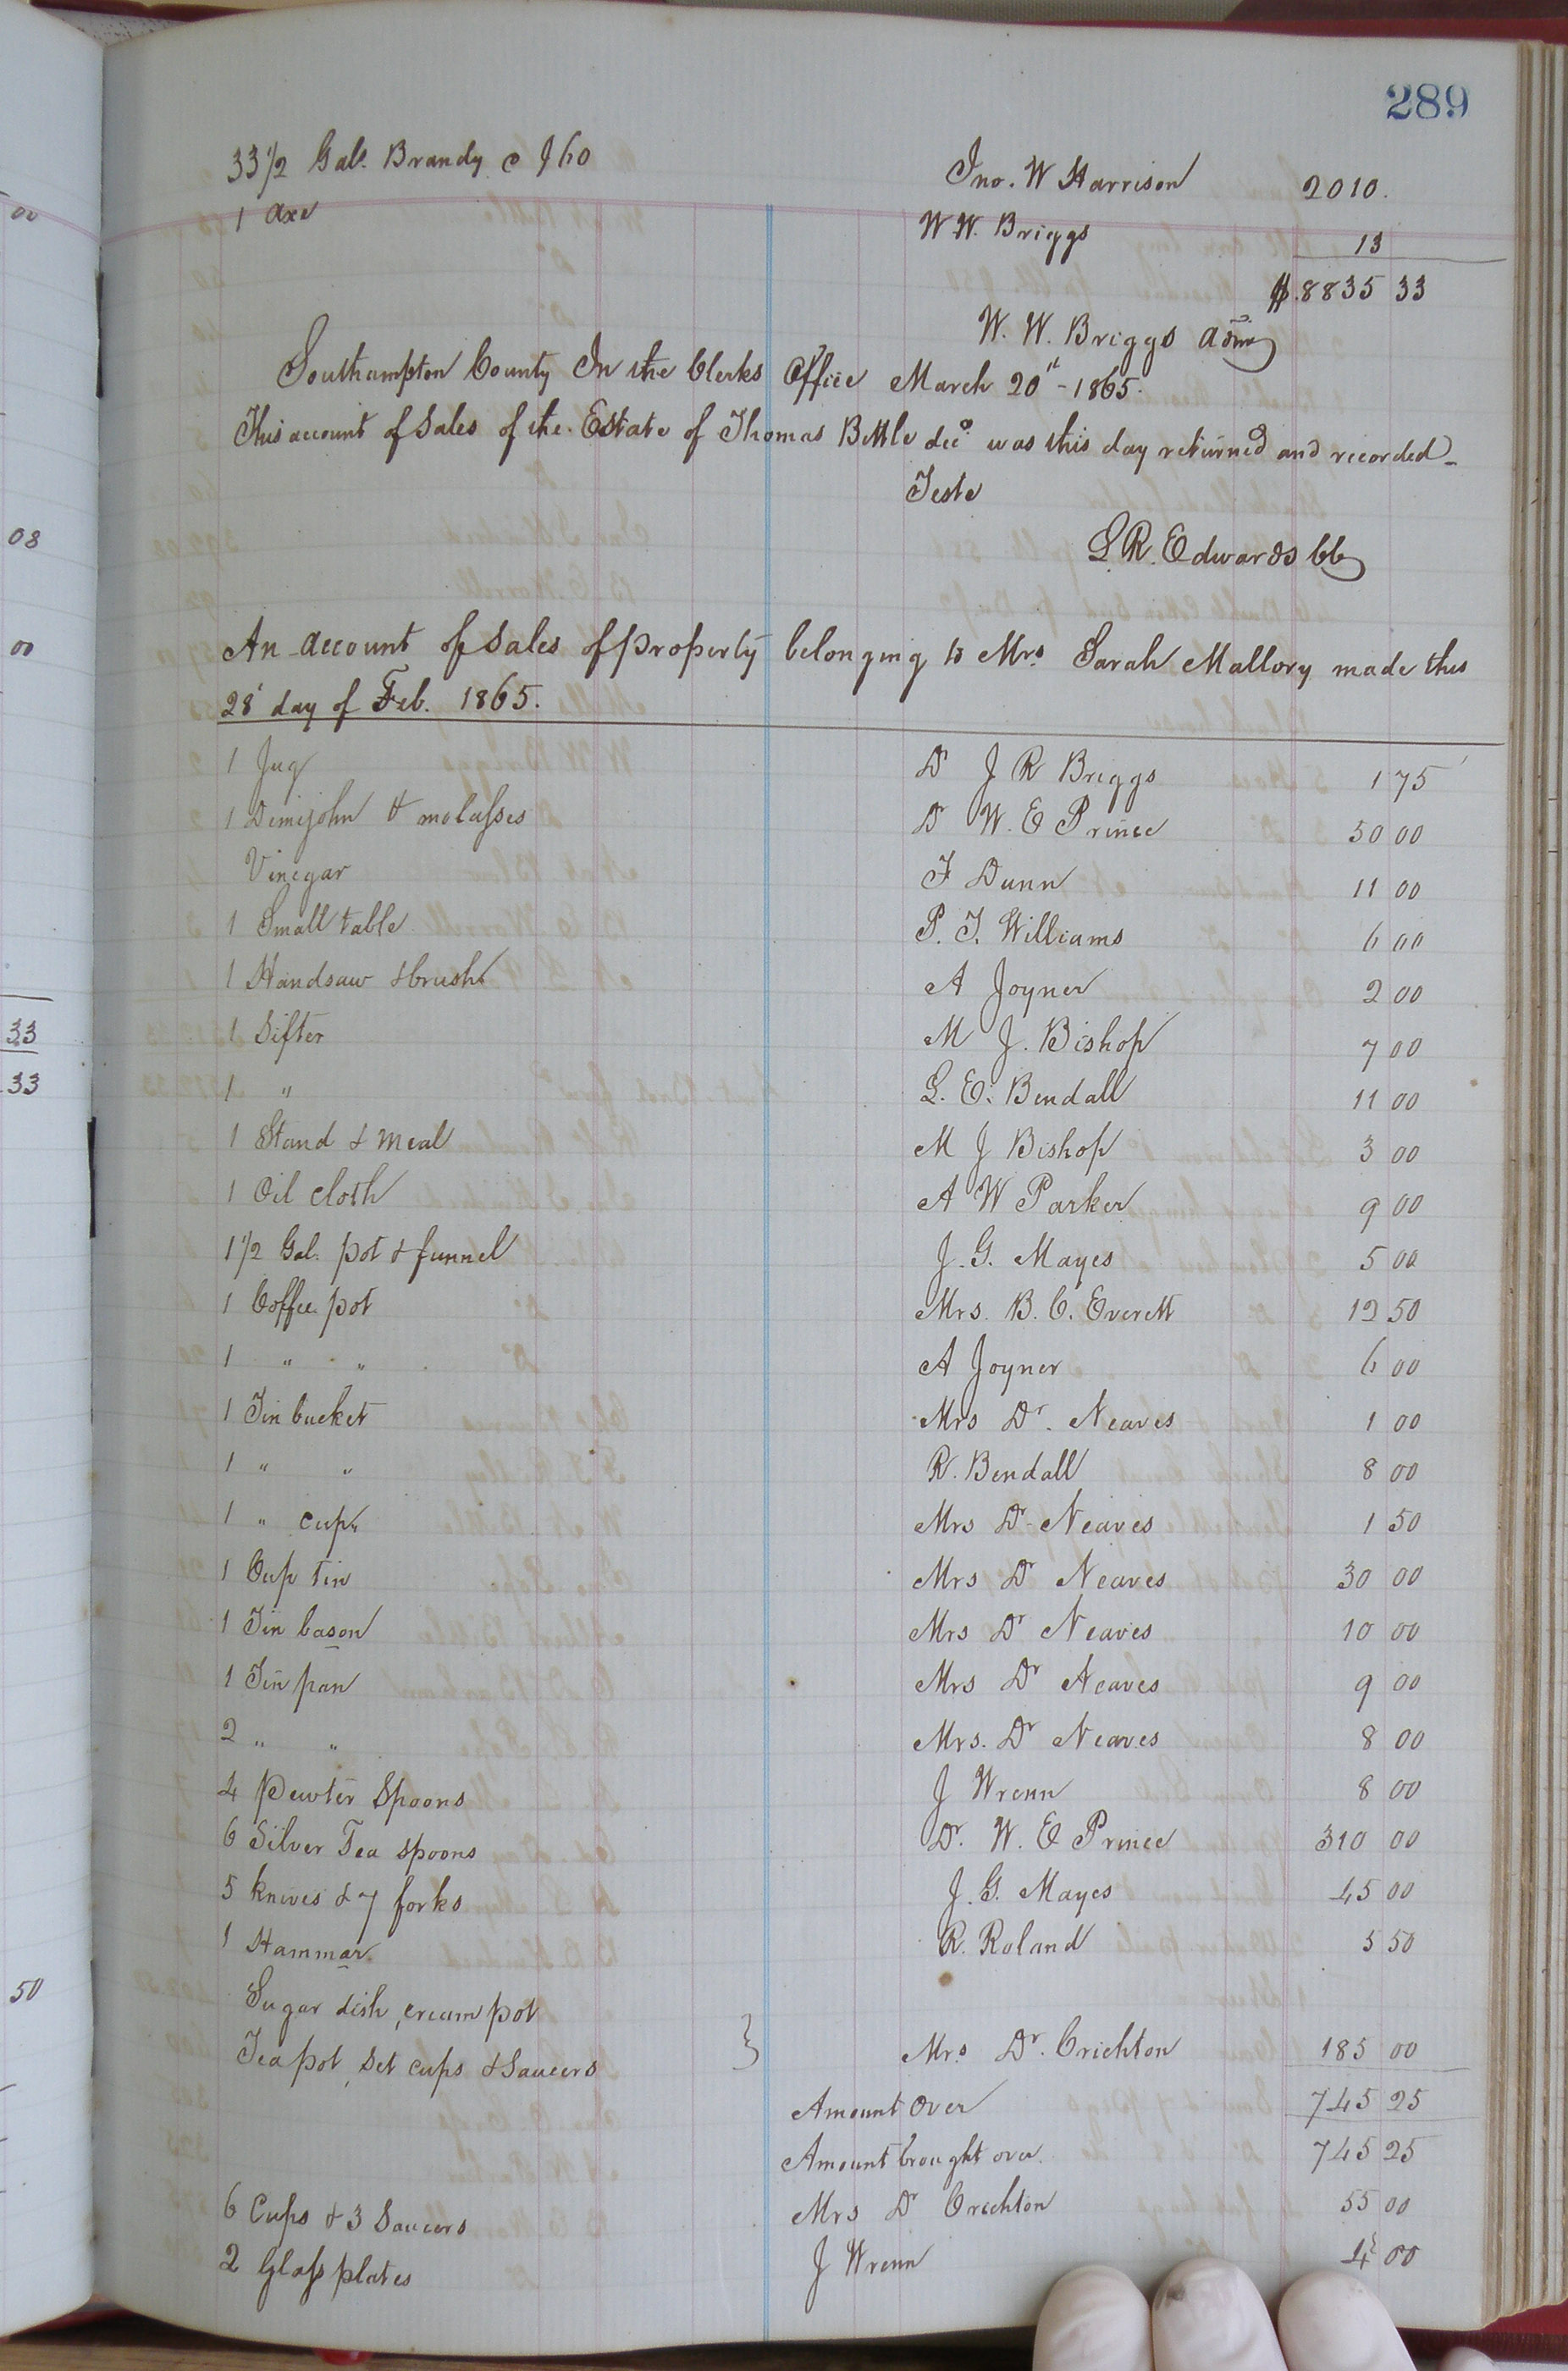 289
33 1/2 Gals. Brandy @ $60 Jno. W Harrison 2010.
1 Axe W. W. Briggs 13
$.8835 33
W. W. Briggs Admr
Southampton County In the Clerks Office March 20th - 1865.
This account of Sales of the Estate of Thomas Bittle decd was this day returned and recorded -
Teste
L. R. Edwards CC
An account of Sales of property belonging to Mrs Sarah Mallory made this
28' day of Feb. 1865.
1 Jug Dr J R Briggs 1 75
1 Demijohn & molasses Dr W. E Prince 50 00
Vinegar F Dunn 11 00
1 Small table P. T. Williams 6 00
1 Handsaw & brush A Joyner 2 00
1 Sifter M J. Bishop 7 00
1 " L. E. Bendall 11 00
1 Stand & Meal M J Bishop 3 00
1 Oil cloth A W Parker 9 00
1 1/2 Gal. pot & funnel J. G. Mayes 5 00
1 Coffee pot Mrs. B. C. Everett 12 50
1 " " A Joyner 6 00
1 Tin bucket Mrs Dr. Neaves 1 00
1 " " R. Bendall 8 00
1 " cup Mrs Dr Neaves 1 50
1 Cup tin Mrs Dr Neaves 30 00
1 Tin bason Mrs Dr Neaves 10 00
1 Tin pan Mrs Dr Neaves 9 00
2 " " Mrs. Dr Neaves 8 00
4 Pewter Spoons J Wrenn 8 00
6 Silver Tea spoons Dr. W. E Prince 310 00
5 knives & 7 forks J. G. Mayes 45 00
1 Hammar R. Roland 5 50
Sugar dish, cream pot
Tea pot, set cups & Saucers } Mrs Dr. Crichton 185 00
Amount Over 745 25
Amount brought over. 745 25
6 Cups & 3 Saucers Mrs Dr Crichton 55 00
2 Glass plates J Wrenn 4 00
00
08
00
33
33
50